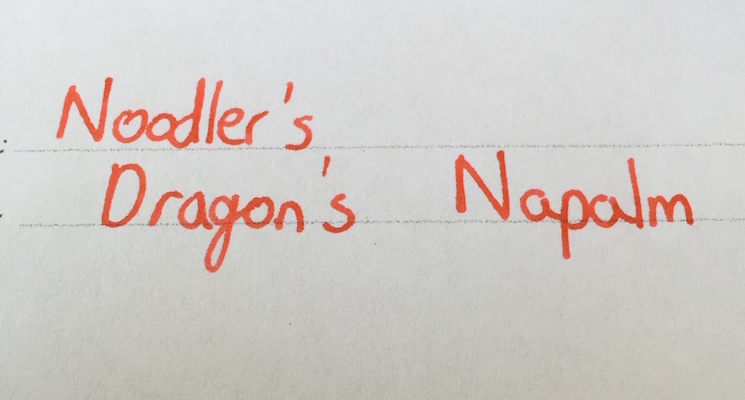 Noodler's
Dragon's Napalm